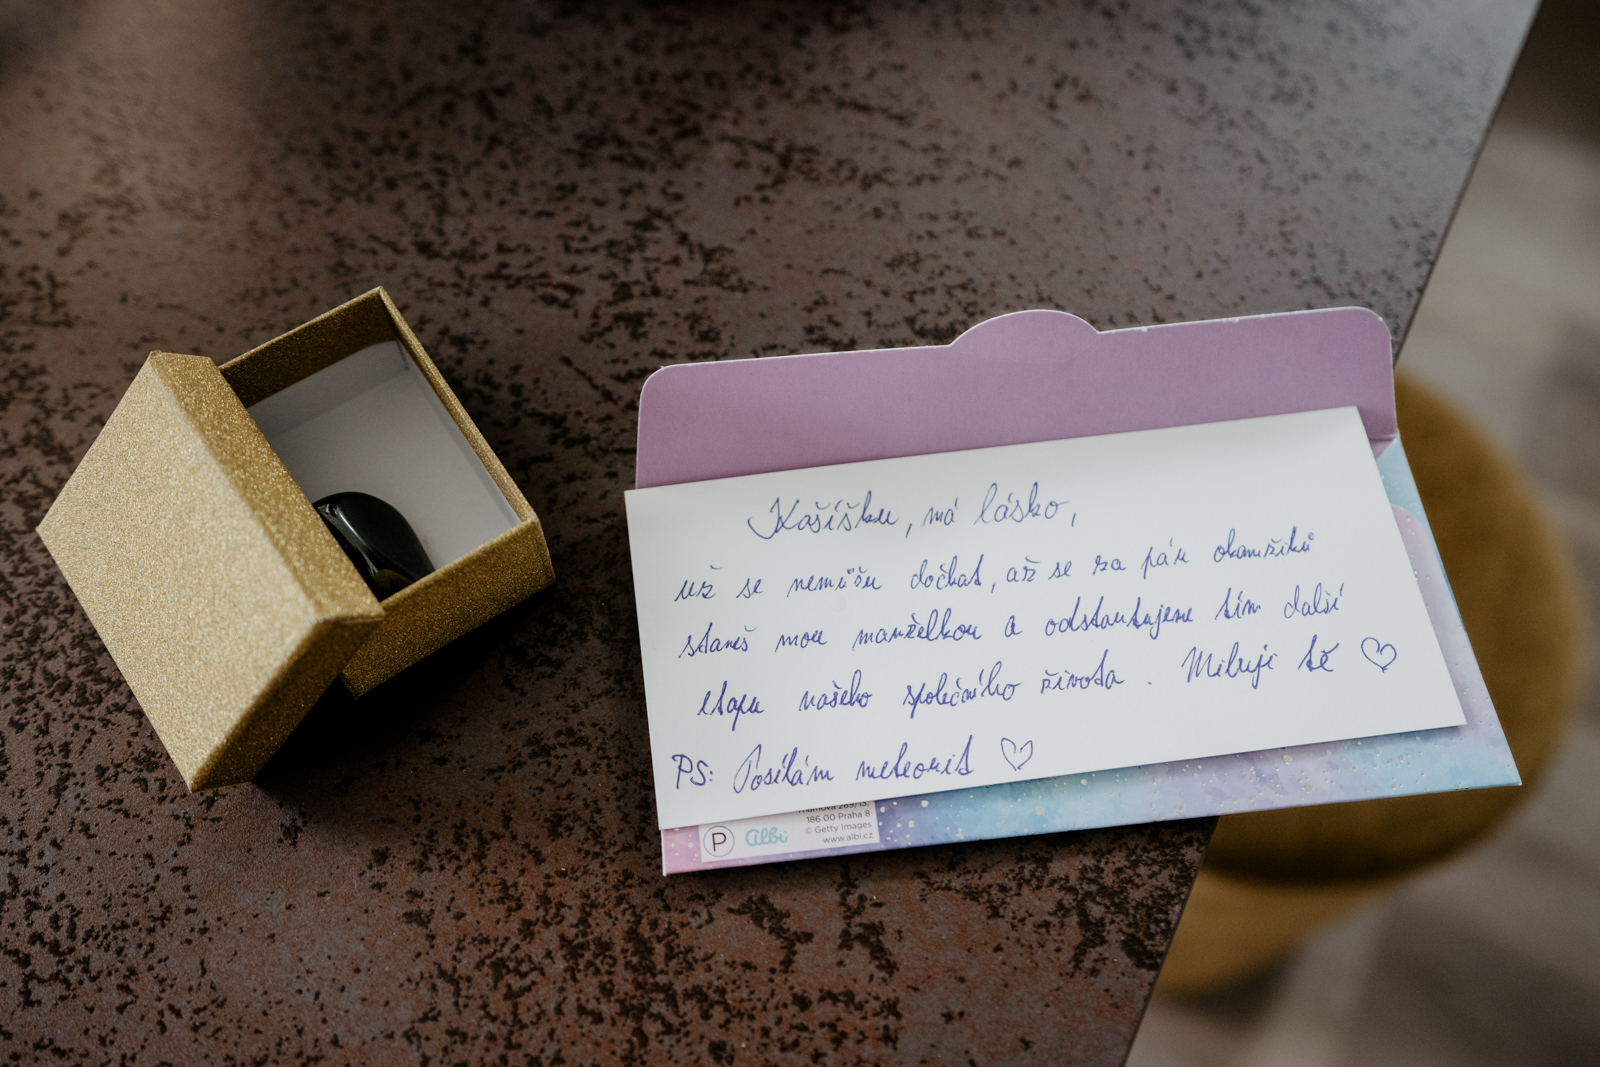 Kašíšku, má lásko,
už se nemůžu dočkat, až se za pár okamžiků
staneš mou manželkou a odstartujeme tím další
etapu našeho společného života. Miluji tě ♡
PS: Posílám meteorit ♡
289/13,
186 00 Praha 8
© Getty Images
www.albi.cz
P
albi